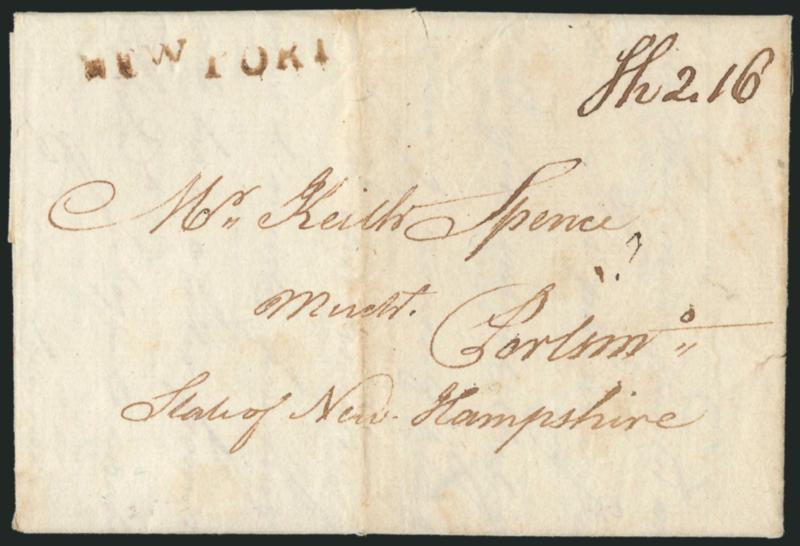 NEWPORT
Sh 2.16
Mr. Keith Spence
Mercht.
Portsmo.
State of New Hampshire